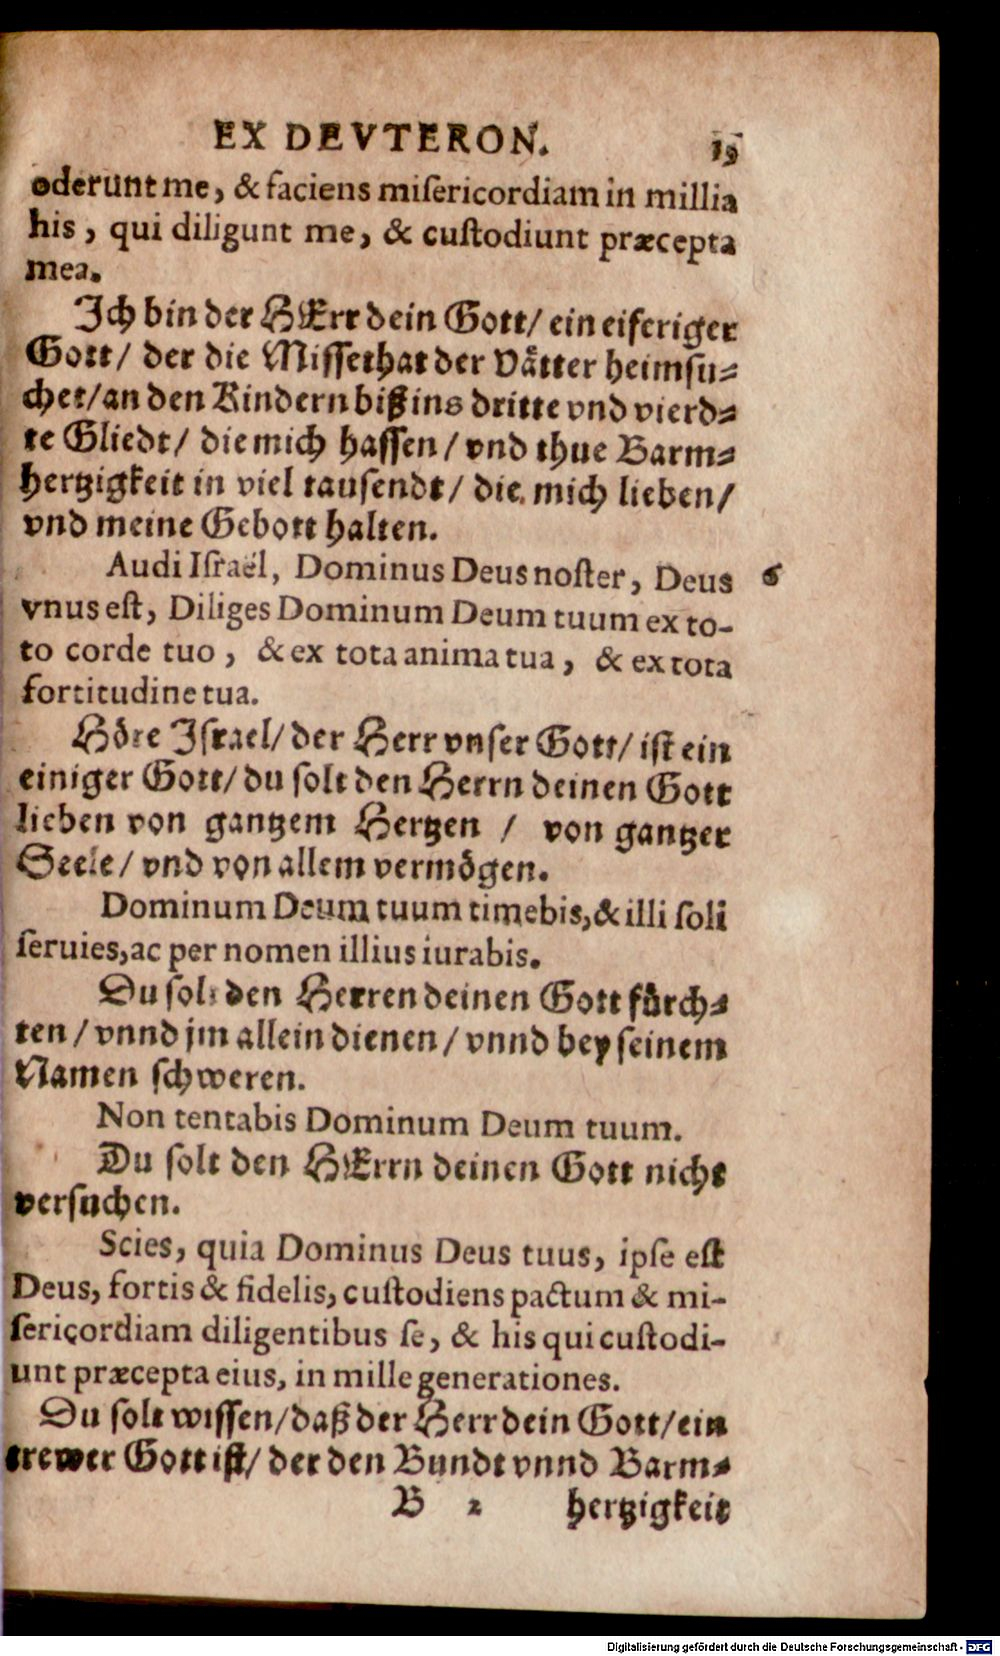 EX DEVTERON. 19
oderunt me, & faciens miſericordiam in millia
his, qui diligunt me, & cuſtodiunt præcepta
mea.
Ich bin der HErr dein Gott/ ein eiferiger
Gott/ der die Miſſethat der Vätter heimſu⸗
chet/ an den Kindern biß ins dritte vnd vierd⸗
te Gliedt/ die mich haſſen/ vnd thue Barm⸗
hertzigkeit in viel tauſendt/ die mich lieben/
vnd meine Gebott halten.
Audi Iſraël, Dominus Deus noſter, Deus 6
vnus eſt, Diliges Dominum Deum tuum ex to-
to corde tuo, & ex tota anima tua, & ex tota
fortitudine tua.
Höre Iſrael/ der Herr vnſer Gott/ iſt ein
einiger Gott/ du ſolt den Herrn deinen Gott
lieben von gantzem Hertzen / von gantzer
Seele/ vnd von allem vermögen.
Dominum Deum tuum timebis, & illi ſoli
ſeruies, ac per nomen illius iurabis.
Du ſolt den Herren deinen Gott fürch⸗
ten/ vnnd jm allein dienen/ vnnd bey ſeinem
Namen ſchweren.
Non tentabis Dominum Deum tuum.
Du ſolt den HErrn deinen Gott nicht
verſuchen.
Scies, quia Dominus Deus tuus, ipſe eſt
Deus, fortis & fidelis, cuſtodiens pactum & mi-
ſericordiam diligentibus ſe, & his qui cuſtodi-
unt præcepta eius, in mille generationes.
Du ſolt wiſſen/ daß der Herr dein Gott/ ein
trewer Gott iſt/ der den Bundt vnnd Barm⸗
B 2 hertzigkeit
Digitalisierung gefördert durch die Deutsche Forschungsgemeinschaft - DFG